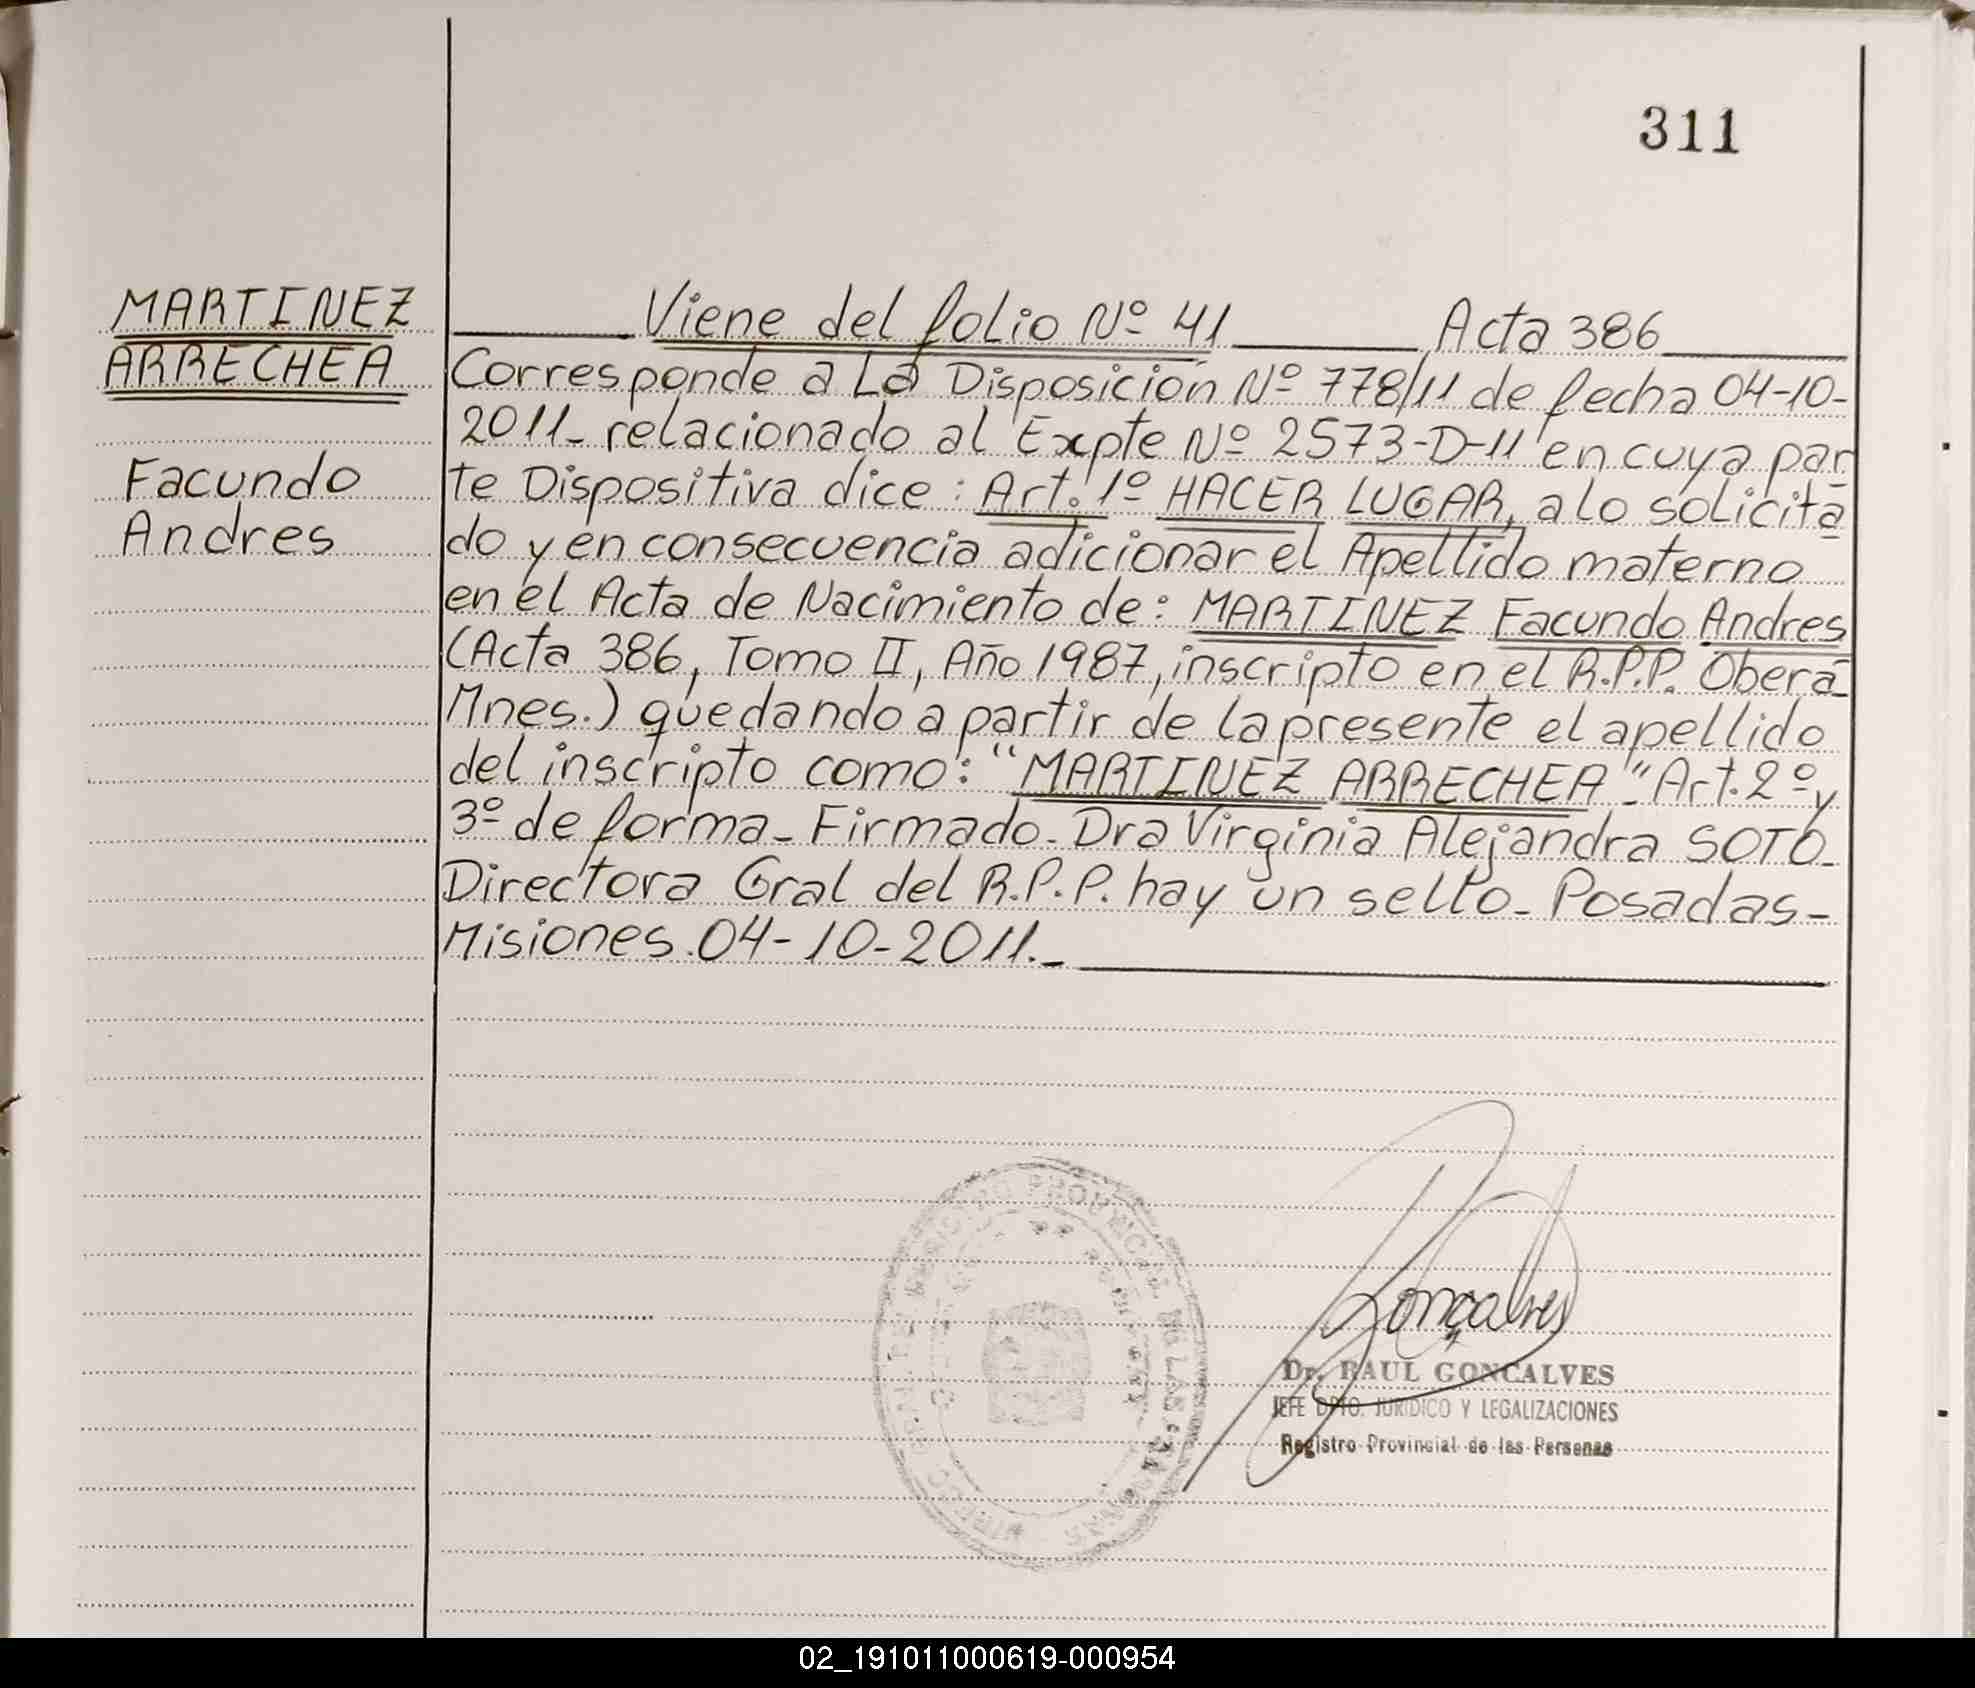 311
MARTINEZ
ARRECHEA
Facundo
Andres
Viene del folio Nº 41 Acta 386
Corresponde a La Disposición Nº 778/11 de fecha 04-10-
2011- relacionado al Expte Nº 2573-D-11 en cuya par
te Dispositiva dice: Art. 1º HACER LUGAR, a lo solicita
do y en consecuencia adicionar el Apellido materno
en el Acta de Nacimiento de: MARTINEZ Facundo Andres
(Acta 386, Tomo II, Año 1987, inscripto en el R.P.P. Oberá-
Mnes.) quedando a partir de la presente el apellido
del inscripto como: "MARTINEZ ARRECHEA"- Art. 2º y
3º de forma- Firmado- Dra Virginia Alejandra SOTO-
Directora Gral del R.P.P. hay un sello- Posadas-
Misiones. 04-10-2011.-
Gonçalves
Dr. RAUL GONCALVES
JEFE DPTO. JURIDICO Y LEGALIZACIONES
Registro Provincial de las Personas
02_191011000619-000954